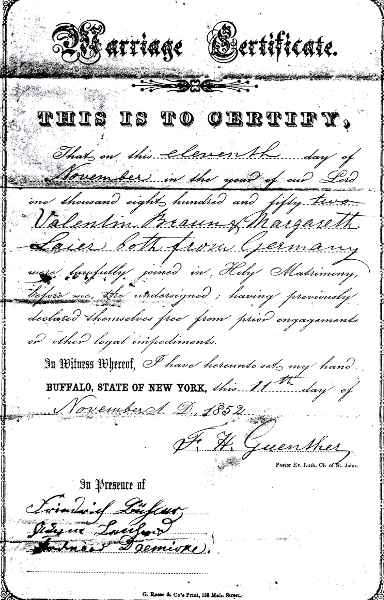 Marriage Certificate.
THIS IS TO CERTIFY,
That on this eleventh day of
November in the year of our Lord
one thousand eight hundred and fifty two
Valentin Braun & Margareth
Laier both from Germany
were lawfully joined in Holy Matrimony,
before me, the undersigned; having previously
declared themselves free from prior engagements
or other legal impediments.
In Witness Whereof, I have hereunto set my hand
BUFFALO, STATE OF NEW YORK, this 11th day of
November A. D. 1852
F. H. Guenther
Pastor Ev. Luth. Ch. of St. John.
In Presence of
Friedrich
G. Reese & Co's Print, Main Street.